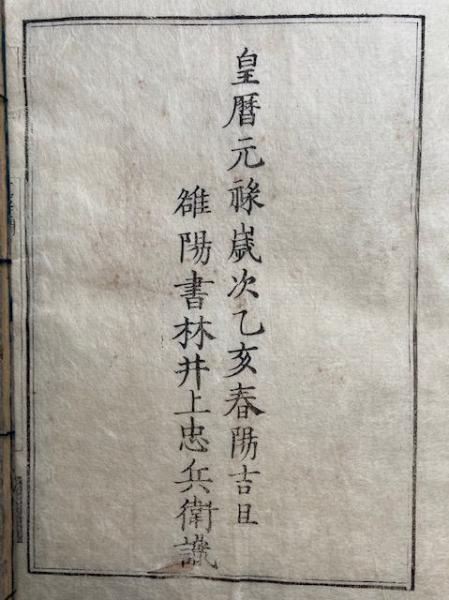 皇暦元祿歳次乙亥春陽吉旦
雒陽書林井上忠兵衛識